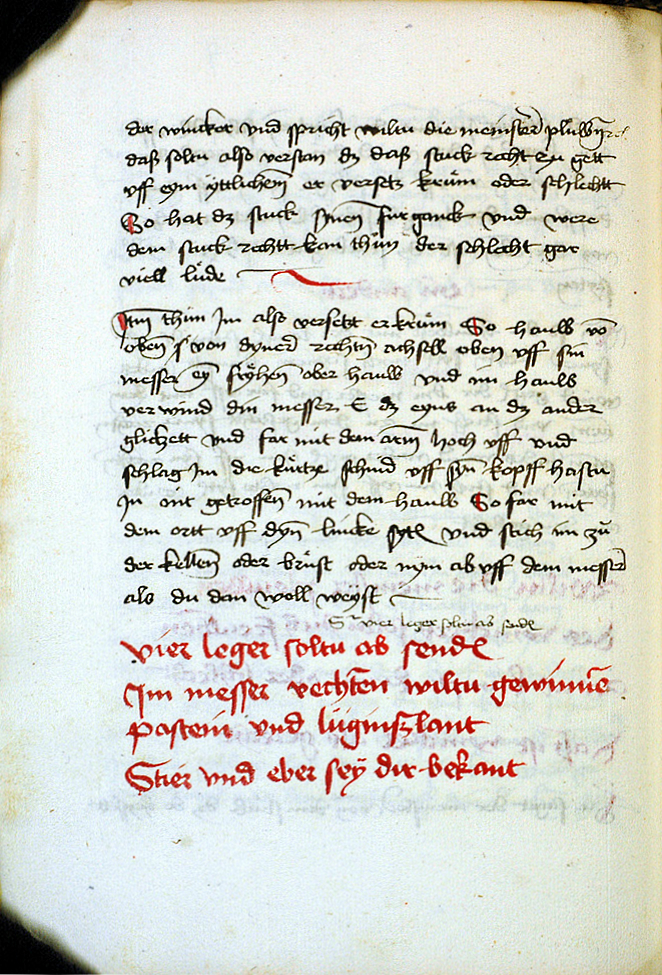 der wincker vnd spricht wiltu die meinster
daß soltu also verstan dz daß stuck recht zu gett
vff eym yttlichem er versetz krům oder schlechtt
So hat dz stuck synen fürganck vnd were
dem stuck rechtt kan thůn der schlecht gar
viell lüde
Itm thun Im also versett er krům So hauw vō
oben von dyner rechtn achsell oben vff sin
messer ey fryhen ober hauw vnd im hauw
verwind din messer E dz eyns an dz ander
glichett vnd far mit dem arm hoch vff vnd
schlag Im die kürtze schnid vff syn kopff hastu
In nit getroffen mit dem hauw So far mit
dem ortt vff dyn lincke sytt vnd stich im zů
der kellen oder brüst oder nym ab vff dem messer
als du dan woll weyst
vier leger soltu ab send
vier leger soltu ab send
Im messer vechten wiltu gewinnē
pastein vnd lüginßlant
Stier vnd eber sey dir bekant